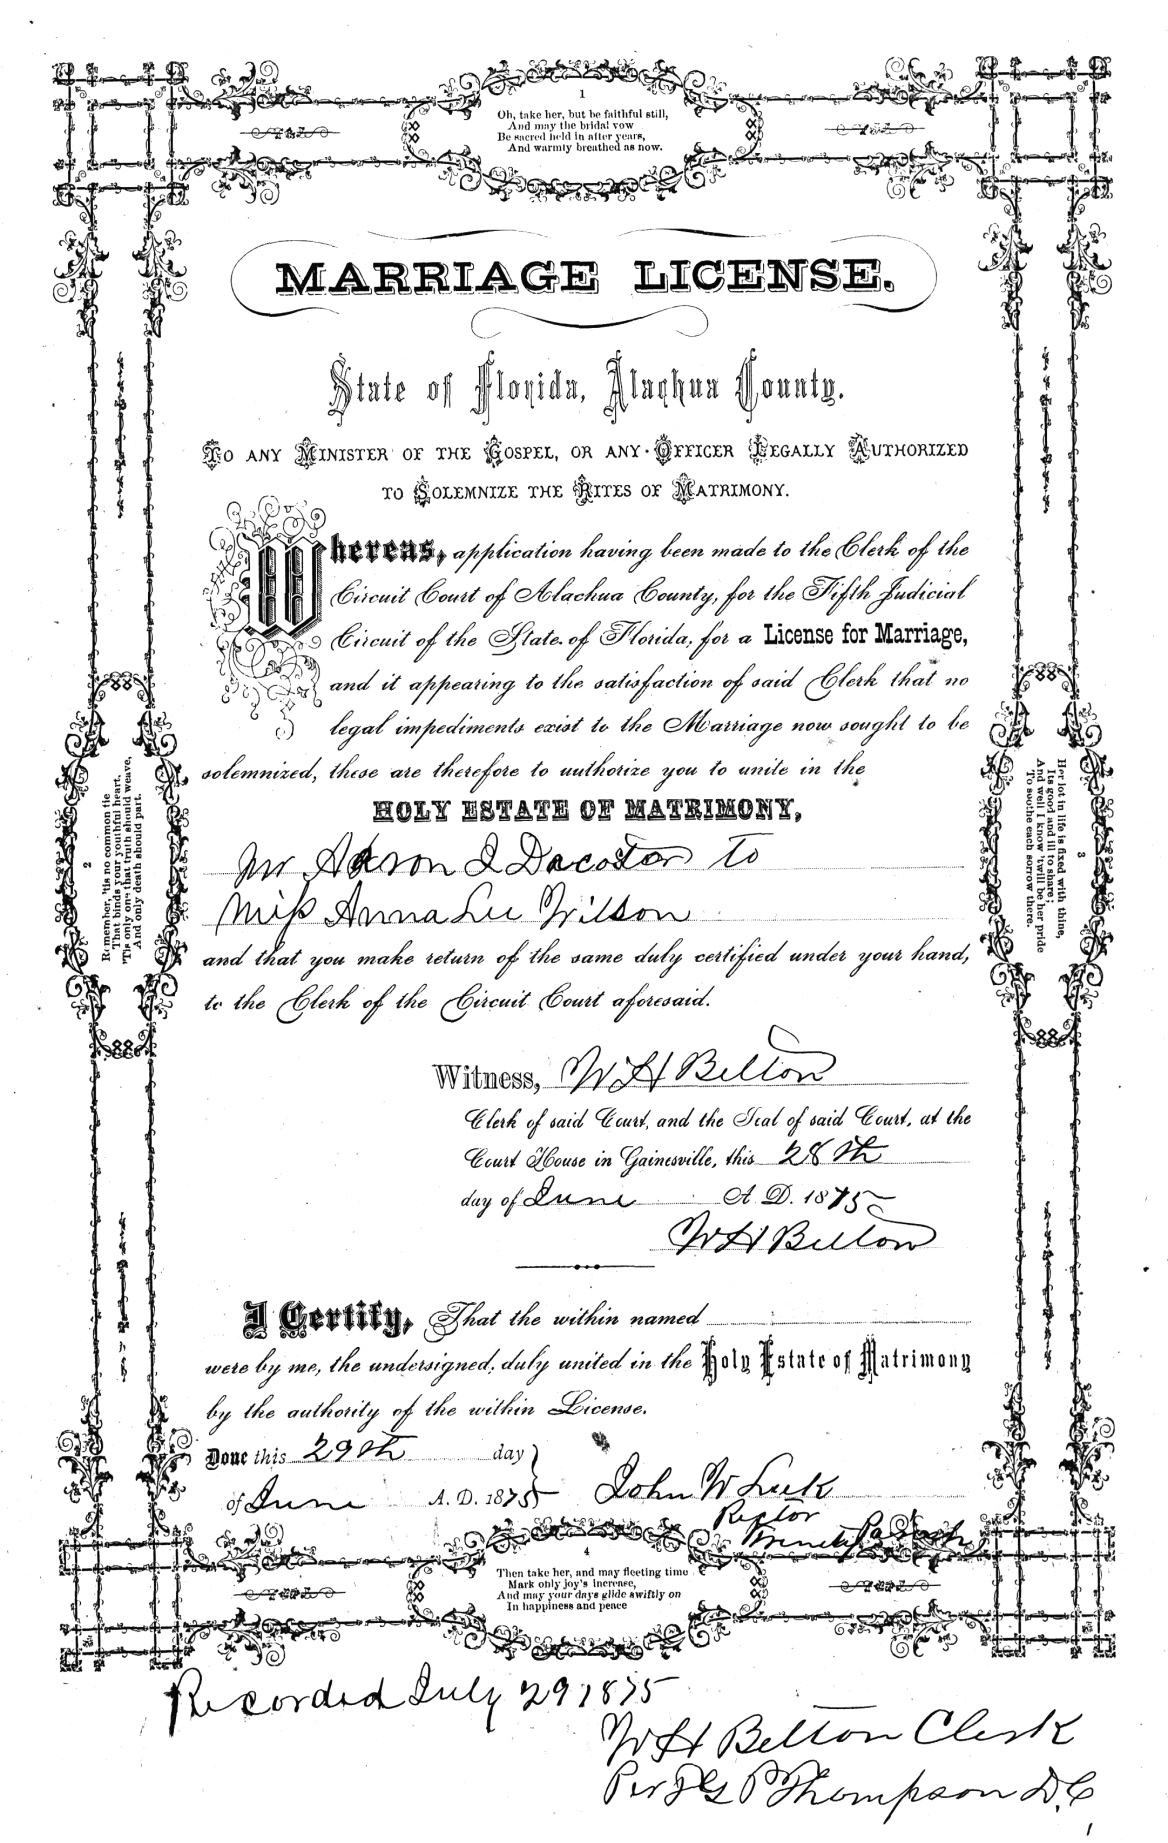 1
Oh, take her, but be faithful still,
And may the bridal vow
Be sacred held in after years,
And warmly breathed as now.
MARRIAGE LICENSE.
State of Florida, Alachua County.
TO ANY MINISTER OF THE GOSPEL, OR ANY OFFICER LEGALLY AUTHORIZED
TO SOLEMNIZE THE RITES OF MATRIMONY.
Whereas, application having been made to the Clerk of the
Circuit Court of Alachua County, for the Fifth Judicial
Circuit of the State of Florida, for a License for Marriage,
and it appearing to the satisfaction of said Clerk that no
legal impediments exist to the Marriage now sought to be
solemnized, these are therefore to authorize you to unite in the
HOLY ESTATE OF MATRIMONY,
Mr Aaron I Dacostar to
Miss Anna Lee Wilson
and that you make return of the same duly certified under your hand,
to the Clerk of the Circuit Court aforesaid.
Witness, W H Belton
Clerk of said Court, and the Seal of said Court, at the
Court House in Gainesville, this 28th
day of June A. D. 1875
W H Belton
I Certify, That the within named
were by me, the undersigned, duly united in the Holy Estate of Matrimony
by the authority of the within License.
Done this 29th day
of June A. D. 1875 John W
Rector
Parish
2
Remember, 'tis no common tie
That binds your youthful heart,
'Tis only one that truth should weave,
And only death should part.
3
Her lot in life is fixed with thine,
Its good and ill to share;
And well I know 'twill be her pride
To soothe each sorrow there.
4
Then take her, and may fleeting time
Mark only joy's increase,
And may your days glide swiftly on
In happiness and peace
Recorded July 29 1875
W H Belton Clerk
Per Thompson D. C